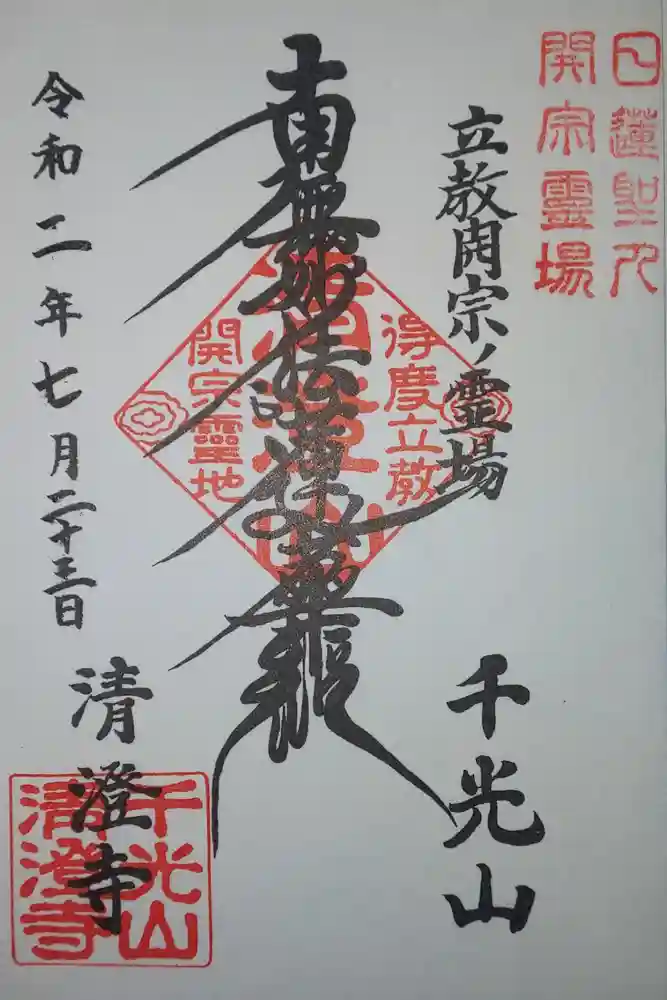 日蓮聖人
開宗靈場
立教開宗ノ霊場
千光山
南無妙法蓮華経
得度立教
開宗靈地
令和二年七月二十三日
清澄寺
千光山
清澄寺